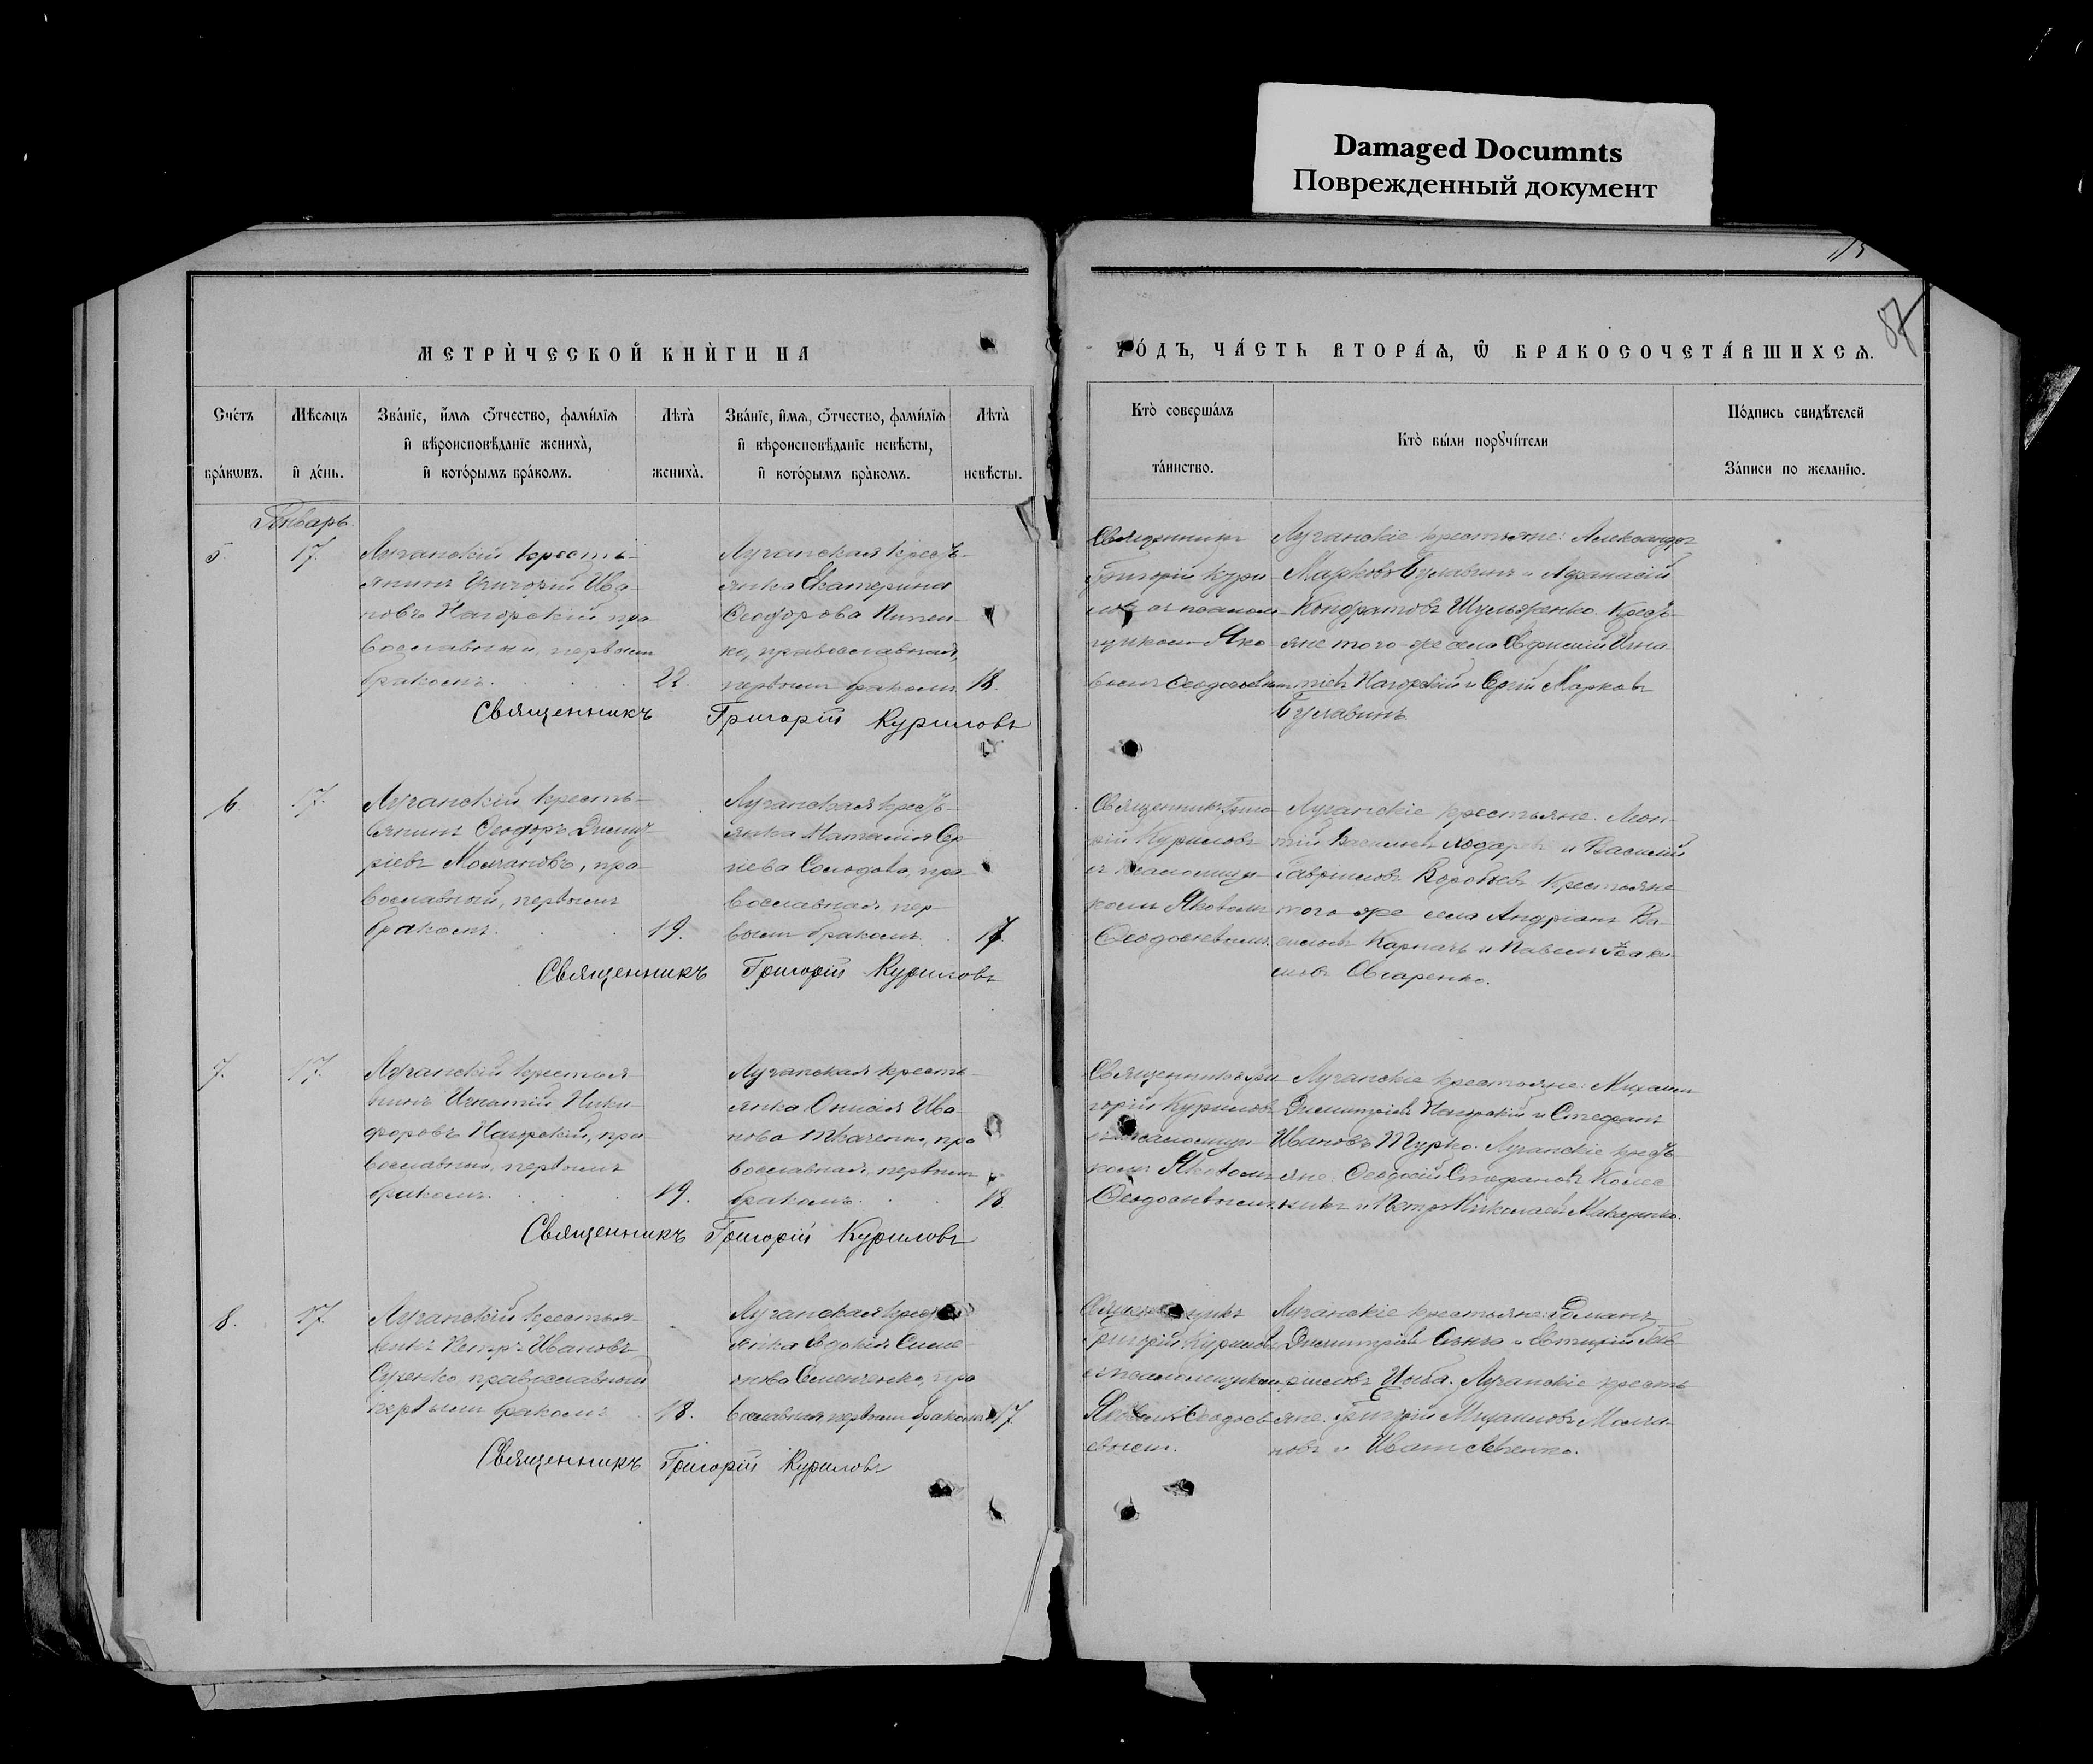 Damaged Documnts
Поврежденный документ
87
МЕТРИ́ЧЕСКОЙ КНИ́ГИ НА
ГО́ДЪ, ЧА́СТЬ ВТОРА́Ѧ, Ѿ БРАКОСОЧЕТА́ВШИХСѦ.
Сче́тъ
бра́кѡвъ.
Мѣ́сѧцъ
и҆ де́нь.
Зва́нїе, и҆́мѧ ѻ҆́тчество, фами́лїѧ
и҆ вѣроисповѣ́данїе жениха̀,
и҆ кото́рымъ бра́комъ.
Лѣ́та̀
жениха̀.
Зва́нїе, и҆́мѧ, ѻ҆́тчество, фами́лїѧ
и҆ вѣроисповѣ́данїе невѣ́сты,
и҆ кото́рымъ бра́комъ.
Лѣ́та̀
невѣ́сты.
Кто̀ соверша́лъ
та́инство.
Кто̀ бы́ли порꙋчи́тели
По́дпись свидѣ́телей
За́писи по жела́нїю.
Январь.
5.
17.
Луганскій кресть-
янинъ Григорій Ива-
новъ Нагорскій, пра
вославный, первымъ
бракомъ.
22.
Луганская крест-
янка Екатерина
Ѳеодорова
ко, православная,
первымъ бракомъ.
18.
Священникъ
Григорій Кури
ловъ съ псалом
щикомъ Яко
вомъ Ѳеодосіевымъ
Луганскіе крестьяне: Александръ
Марковъ Булавинъ и Афанасій
Кондратовъ Шульженко. Крест-
яне того-же села Игна
тіевъ Нагорскій и Сергѣй Марковъ
Булавинъ.
Священникъ Григорій Куриловъ
6.
17.
Луганскій кресть-
янинъ Ѳеодоръ Димит-
ріевъ Молчановъ, пра-
вославный, первымъ
бракомъ.
19.
Луганская крест-
янка Наталія Сер
гіева Солодова, пра
вославная, пер-
вымъ бракомъ.
17.
Священникъ Григо
рій Куриловъ
съ псаломщи
комъ Яковомъ
Ѳеодосіевымъ.
Луганскіе крестьяне: Леон-
тій Васильевъ и Василій
Гавриловъ Воробьевъ. Крестьяне
того-же села Андріанъ Ва-
сильевъ Карпачъ и Павелъ
Овчаренко.
Священникъ Григорій Куриловъ
7.
17.
Луганскій крестья
нинъ Игнатій Ники-
форовъ Нагорскій, пра-
вославный, первымъ
бракомъ.
19.
Луганская кресть-
янка Онисія Ива-
нова Ткаченко, пра
вославная, первымъ
бракомъ.
18.
Священникъ Гри
горій Куриловъ
съ псаломщи
комъ Яковомъ
Ѳеодосіевымъ.
Луганскіе крестьяне: Михаилъ
Димитріевъ Нагорскій и Стефанъ
Ивановъ Турко. Луганскіе крест-
яне: Ѳеодосій Стефановъ Колес
никъ и Петръ Николаевъ Макаренко.
Священникъ Григорій Куриловъ
8.
17.
Луганскій крестья-
нинъ Петръ Ивановъ
православный
первымъ бракомъ
18.
Луганская крест
янка Евдокія Симе
онова Семенченко, пра
вославная, первымъ бракомъ
17.
Священникъ
Григорій Куриловъ
съ псаломщикомъ
Яковомъ Ѳеодосі-
евымъ.
Луганскіе крестьяне: Романъ
Димитріевъ и Евтихій Гав-
риловъ Цыба. Луганскіе кресть
яне: Григорій Михаиловъ Молча-
новъ и Иванъ Левченко.
Священникъ Григорій Куриловъ